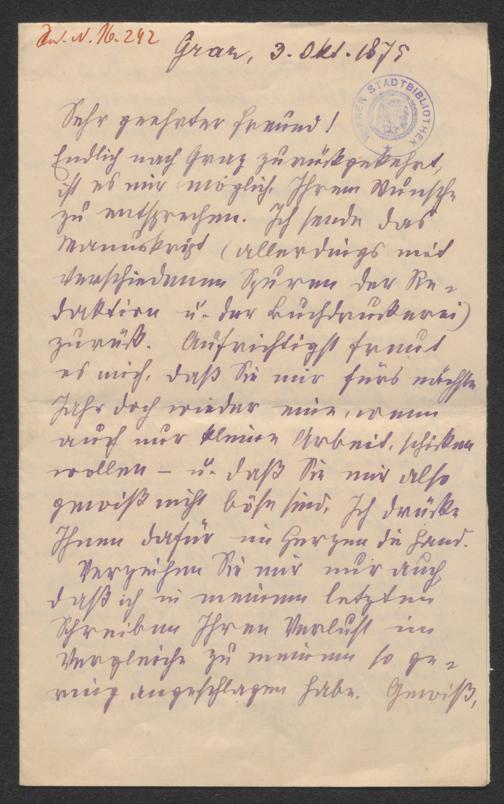 J. N. 16.242
Graz, 3. Okt. 1875
WIENER STADTBIBLIOTHEK
Sehr geehrter Freund!
Endlich nach Graz zurückgekehrt,
ist es mir möglich, Ihrem Wunsche
zu entsprechen. Ich sende das
Manuskript (allerdings mit
verschiedenen Spuren der Re-
daktion u. der Buchdruckerei)
zurück. Aufrichtigst freut
es mich, daß Sie mir fürs nächste
Jahr doch wieder eine, wenn
auch nur kleine Arbeit, schicken
wollen – u. daß Sie mir also
gewiß nicht böse sind. Ich drücke
Ihnen dafür im Herzen die Hand.
Verzeihen Sie mir nur auch,
daß ich in meinem letzten
Schreiben Ihren Verlust im
Vergleiche zu meinem so ge-
ring angeschlagen habe. Gewiß,